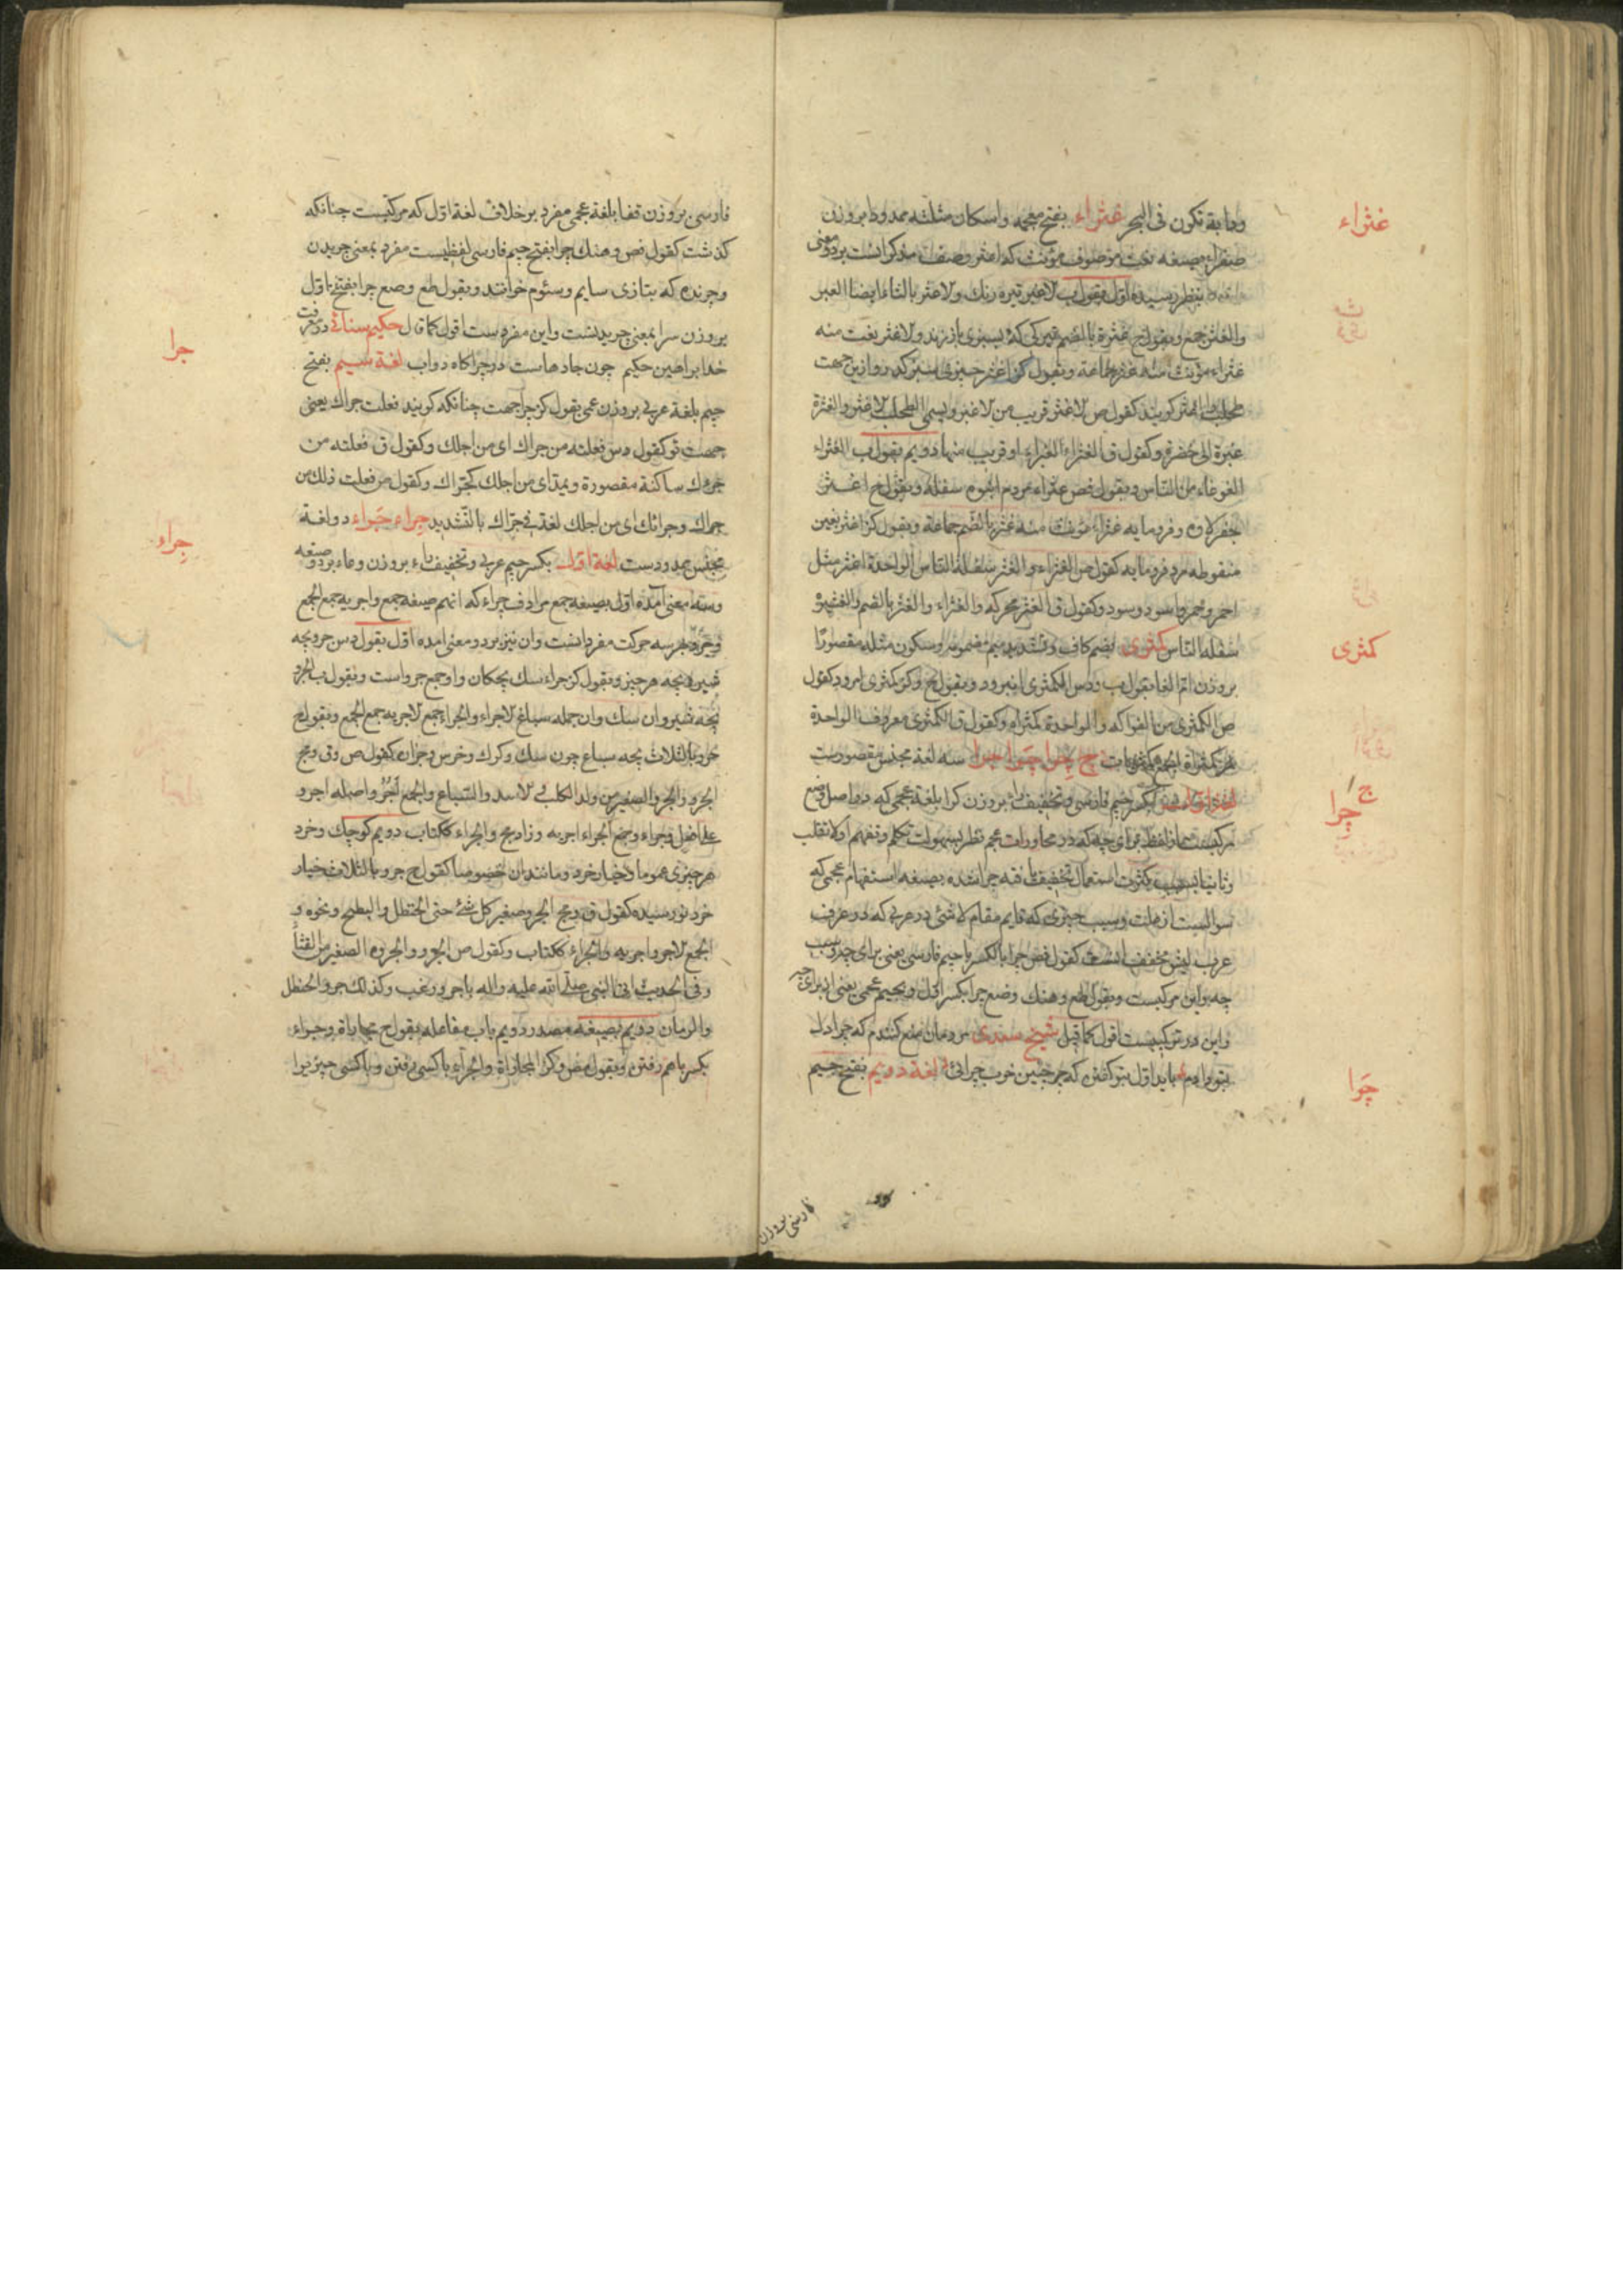 ودابة تكون فى البحر غثراء بفتح معجمه واسكان مثلثه ممدودا بروزن
صفراء بصيغه نعت موصوف مونث كه اغثر وصف مذكر انست بردو معنى
بنظر رسيده اول بقول ب لاغبر تيره رنك ولاغثر بالثاء ايضا الغبر
والغثر جمع وبقول ج غثرة بالضم كه بسبزى باز زند ولاغثر نعت منه
غثراء مونث منه غثر جماعة وبقول كز اغثر چيزى سبز كه ازين جهت
طحلب را اغثر كويند كقول ص لاغثر قريب من لاغبر ويسمى الطحلب لاغثر والغثرة
غبرة الى خضرة وكقول ق الغثراء الغبراء او قريب منها دويم بقول ب الغثراء
الغوغاء من الناس وبقول فص غثراء مردم انبوه سفله وبقول ج اغثر
وفرومايه غثراء مونث منه غثر بالضم جماعة وبقول كز اغثر بغين
منقوطه مرد فرومايه كقول ص الغثراء والغثر سفلة الناس الواحدة اغثر مثل
احمر وحمر واسود وسود وكقول ق الغثر محركه والغثراء والغثر بالضم والغيثرة
سفلة الناس كمثرى بضم كاف وتشديد ميم مضمومه وسكون مثلثه مقصورا
بروزن بقول ب ودس الكمثرى انبرود وبقول ج وكز كمثرى امرود كقول
ص الكمثرى من الفواكه والواحدة كمثراة وكقول ق الكمثرى معروف الواحدة
كمثراة ج كمثريات ج چرا چرا جرا سه لغة مجنس مقصورست
لغة اول بكسر جيم فارسى وتخفيف راء بروزن كرا بلغة عجمى كه در اصل وضع
مركبست از لفظ براى چه كه در محاورات عجم نظر بسهولت تكلم وتفهم اولا بقلب
وثانيا بسبب كثرت استعمال تخفيف يافته چرا شده بصيغه استفهام عجمى كه
سوالست از علت وسبب چيزى كه قايم مقام لاشئ در عربى كه در عرف
عرب ليش مخفف انست كقول فص چرا بالكسر با جيم فارسى يعنى براى چه وسبب
چه واين مركبست وبقول طع وهنك وضع چرا بكسر اول وبجيم عجمى يعنى از براى چه
واين در تركيبست اقول كما قيل شيخ سعدى مردمان منع كنندم كه چرا دل
بتو دادم بايد اول بتو كفتن كه چنين خوب چرائى لغة دويم بفتح جيم
غثراء
كمثرى
ج
چرا
چرا
فارسى بروزن
فارسى بروزن قفا بلغة عجمى مفرد برخلاف لغة اول كه مركبست چنانكه
كذشت كقول فص وهنك چرا بفتح جيم فارسى لفظيست مفرد بمعنى چريدن
وچرنده كه بتازى سايم وسئوم خوانند وبقول طع وضع چرا بفتح اول
بروزن سرا بمعنى چريدنست واين مفردست اقول كما قال حكيم سنائى در معرفت
خدا براهين حكيم چون جادهاست در چراكاه دواب لغة سيم بفتح
جيم بلغة عربى بروزن عمى بقول كز جرا جهت چنانكه كويند فعلت جراك يعنى
جهت تو كقول دس فعلته من جراك اى من اجلك وكقول ق فعلته من
جراك ساكنة مقصورة ويمد اى من اجلك كجراك وكقول ص فعلت ذلك من
جراك وجرائك اى من اجلك لغة فى جراك بالتشديد جراء جراء دو لغة
مجنس ممدودست لغة اول بكسر جيم عربى وتخفيف راء بروزن وعاء بر دو صيغه
وسه معنى امده اول بصيغه جمع مرادف جراء كه انهم صيغه جمع واجريه جمع الجمع
وجرو بهر سه حركت مفرد انست وان نيز بر دو معنى امده اول بقول دس جرو بچه
شير وبچه هر چيز وبقول كز جراء سك بچكان واو جمع جرو است وبقول ب الجرو
بچه شير وان سك وان جمله سباع لاجراء والجراء جمع لاجريه جمع الجمع وبقول ج
جرو بالثلاث بچه سباع چون سك وكرك وخرس وجز ان كقول ص وق ومج
الجرو والجرو الصغير من ولد الكلب ولاسد والسباع والجمع اجر واصله اجرو
على افعل وجراء وجمع الجراء اجريه وزاد مج والجراء ككتاب دويم كوچك وخرد
هر چيزى عموما وخيار خرد ومانند ان خصوصا كقول ج جرو بالثلاث خيار
خرد نورسيده كقول ق ومج الجرو صغير كل شئ حتى الحنظل والبطيخ ونحوه و
الجمع لاجر واجريه والجراء ككتاب وكقول ص الجرو والجروه الصغير من القثاء
وفى الحديث اتى النبى صلى الله عليه واله باجر زغب وكذلك جرو الحنظل
والرمان دويم بصيغه مصدر دويم باب مفاعله بقول ج مجاراة وجراء
بكسر باهم رفتن وبقول فص وكز المجاراة والجراء با كسى رفتن وبا كسى چيزيرا
جرا
جراء